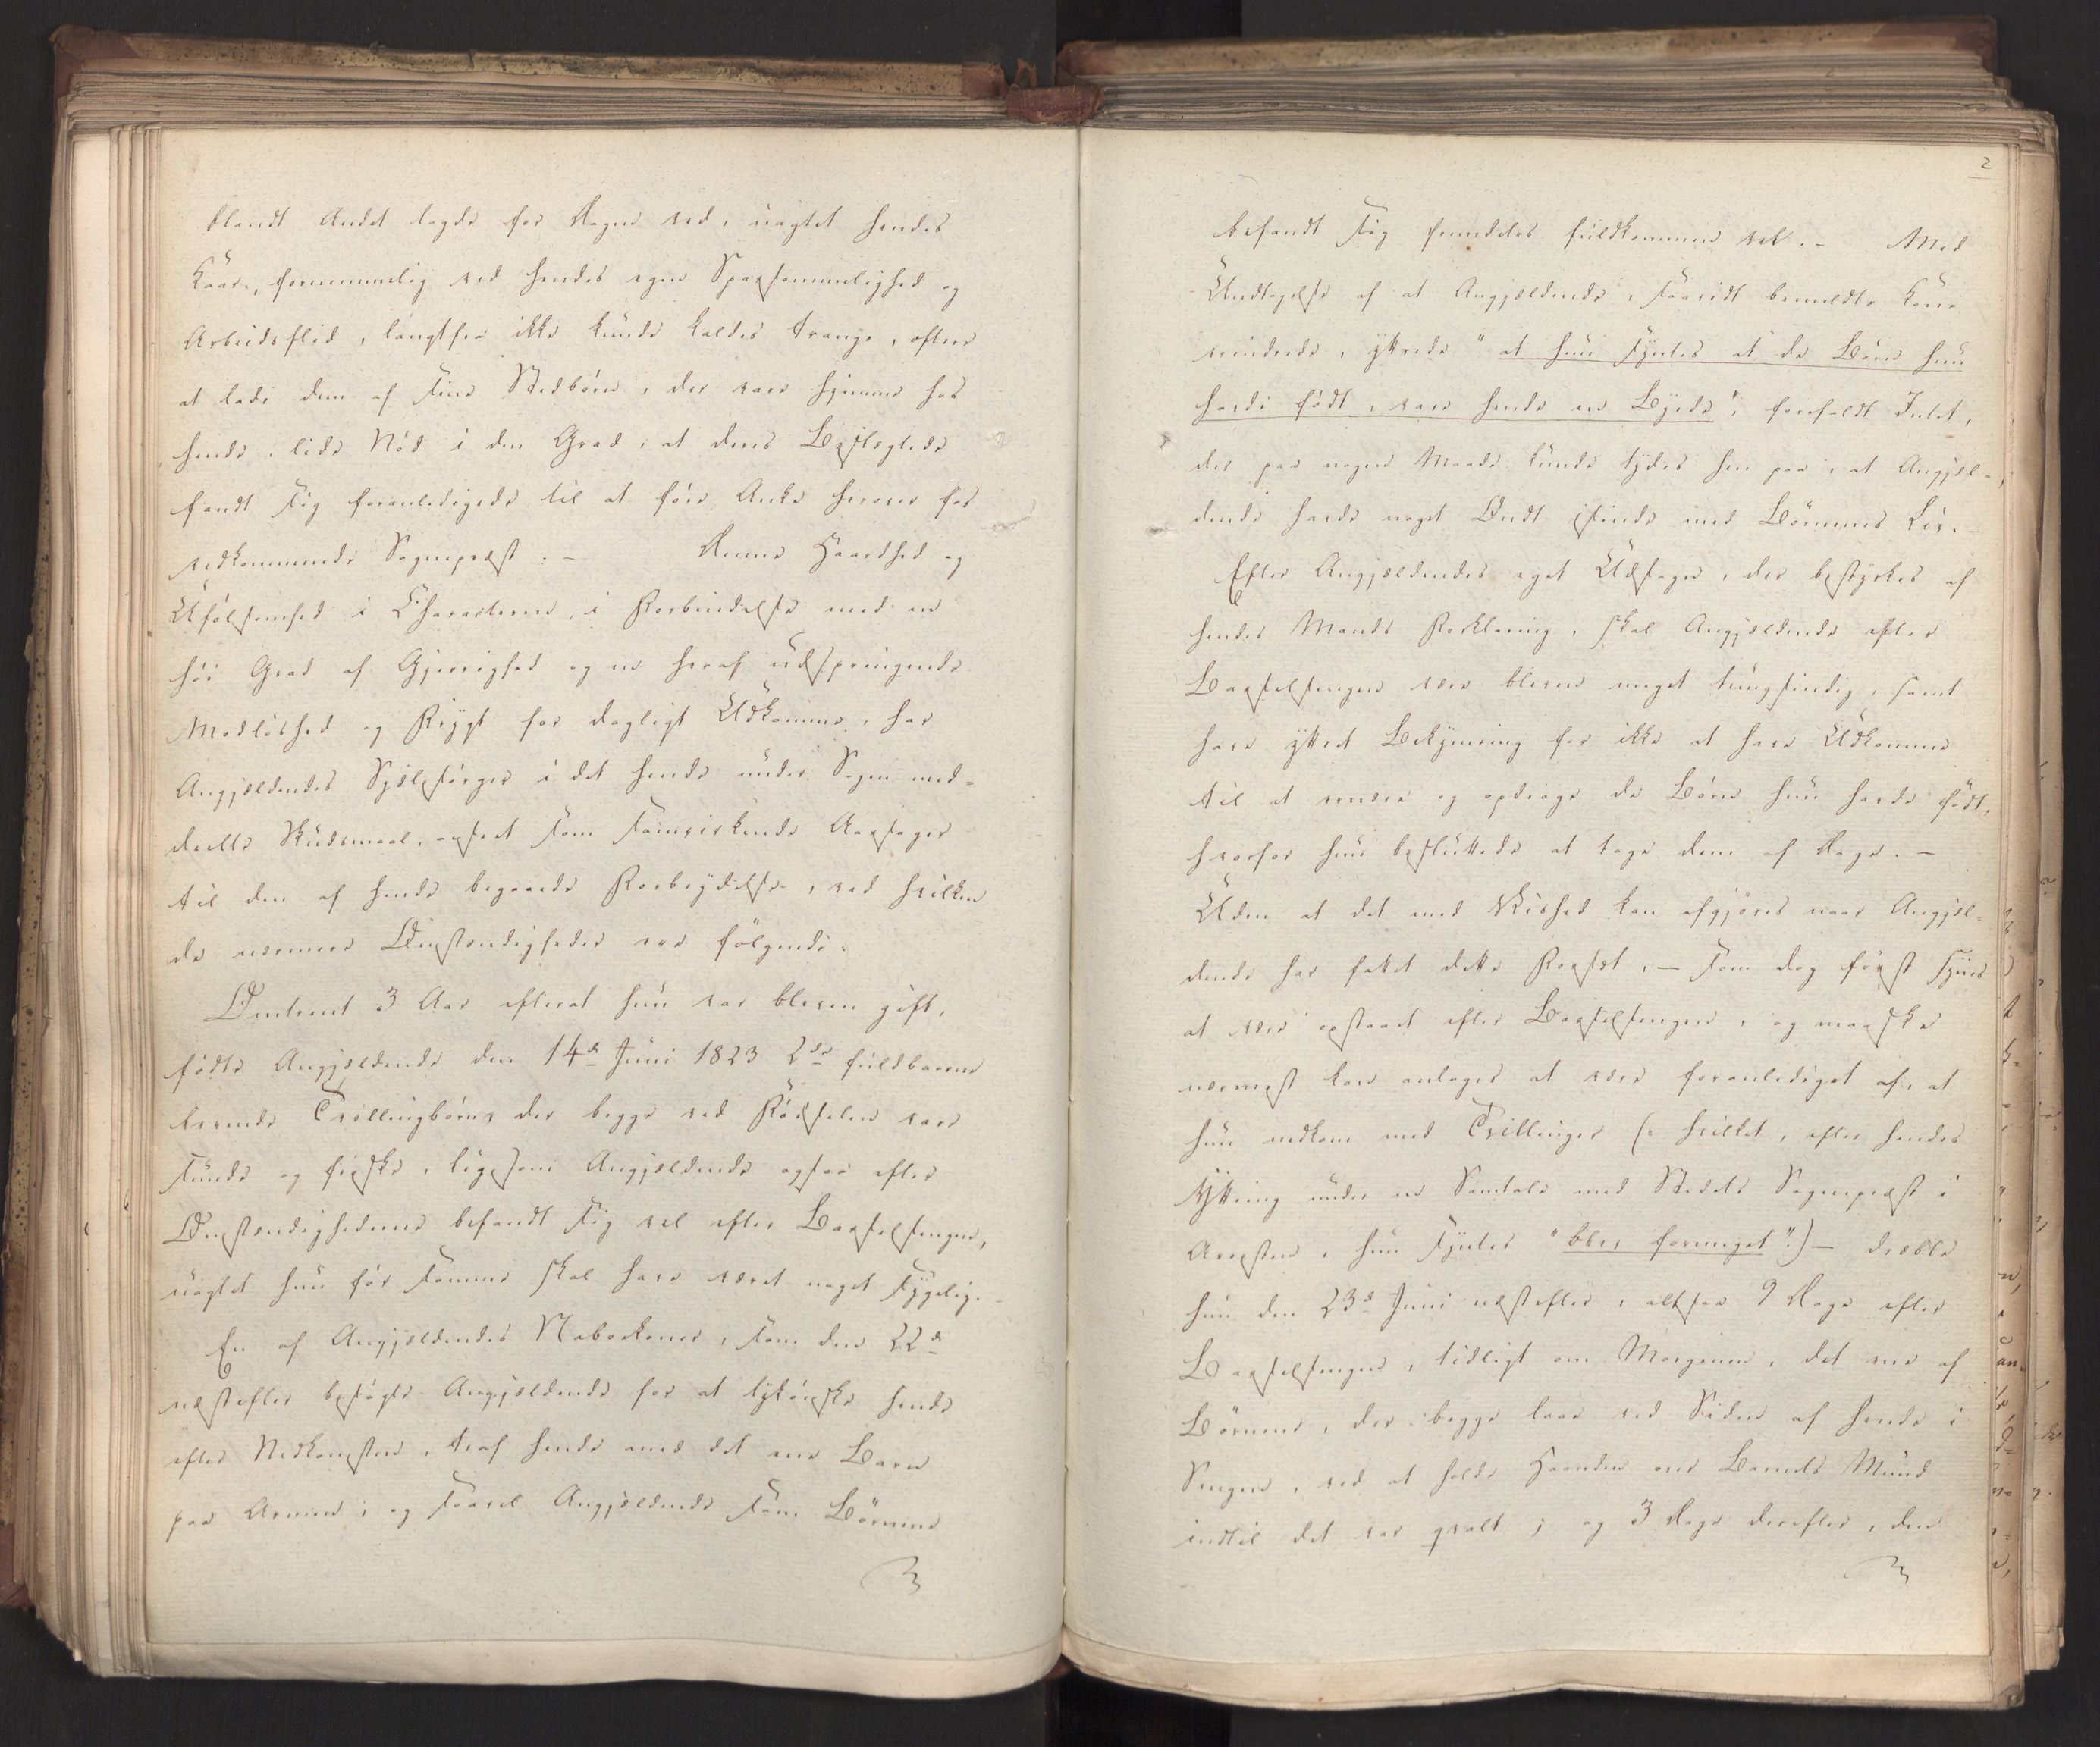 blandt Andet lagde for Dagen ved, uagtet hendes
Kaar, fornemmelig ved hendes egen Sparsommelighed og
Arbeidsflid, langtfra ikke kunde kaldes trange, oftere
at lade dem af sine Stedbörn, der vare hjemme hos
hende, lide Nöd i den Grad, at deres Beslægtede
fandt sig foranledigede til at före Anke herover for
vedkommende Sognepræst. - Denne Haardhed og
Ufölsomhed i Characteren, i Forbindelse med en
höi Grad af Gjerrighed og en heraf udspringende
Modlöshed og Frygt for dagligt Udkomme, har
Angjældendes Sjælesörger i det hende under Sagen med-
deelte Skudsmaal, anseet som samvirkende Aarsager
til den af hende begaaede Forbrydelse, ved hvilken
de nærmere Omstændigheder ere fölgende:
Omtrent 3 Aar efterat hun var bleven gift,
födte Angjældende den 14d Juni 1823 2de fuldbaarne
levende Tvillingbörn, der begge ved Födselen vare
sunde og friske, ligesom Angjældende ogsaa efter
Omstændighederne befandt sig vel efter Barselsengen,
uagtet hun för samme skal have været noget sygelig.
En af Angjældendes Naboekoner, som den 22d
næstefter besögte Angjældende for at lykönske hende
efter Nedkomsten, traf hende med det ene Barn
paa Armen, og saavel Angjældende som Börnene
2
befandt sig fremdeles fuldkommen vel. - Med
Undtagelse af at Angjældende, saavidt bemeldte Kone
erindrede, yttrede "at hun syntes at de Börn hun
havde födt, vare hende en Byrde", forefaldt Intet,
der paa nogen Maade kunde tydes hen paa, at Angjæl-
dende havde noget Ondt isinde mod Börnenes Liv.
Efter Angjældendes eget Udsagn, der bestyrkes af
hendes Mands Forklaring, skal Angjældende efter
Barselsengen være bleven meget tungsindig, samt
have yttret Bekymring for ikke at have Udkomme
til at ernære og opdrage de Börn hun havde födt,
hvorfor hun besluttede at tage dem af Dage. -
Uden at det med Vished kan afgjöres naar Angjæl-
dende har fattet dette Forsæt, - som dog först synes
at være opstaaet efter Barselsengen, og maaske
nærmest kan antages at være foranlediget af, at
hun nedkom med Tvillinger (: hvilket, efter hendes
Yttring under en Samtale med Stedets Sognepræst i
Arresten, hun syntes "blev formeget":) - dræbte
hun den 23d Juni næstefter, altsaa 9 Dage efter
Barselsengen, tidligt om Morgenen, det ene af
Börnene, der begge laae ved Siden af hende i
Sengen, ved at holde Haanden over Barnets Mund
indtil det var qvalt; og 3 Dage derefter, den